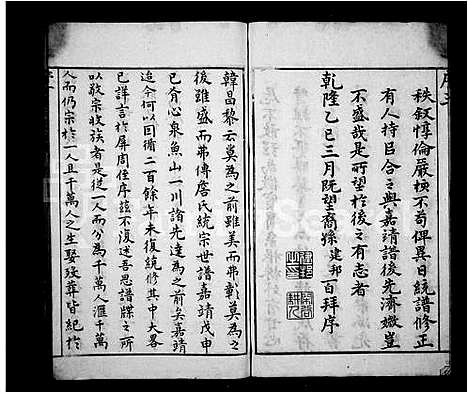 秩叙惇倫嚴核不苟俾異日統譜修正
有人持吕合之與嘉靖譜後先濟媺豈
不盛哉是所望於後之有志者
乾隆乙巳三月既望裔孫建邦百拜序
韓昌黎云莫為之前雖美而弗彰莫為之
後雖盛而弗傳詹氏統宗世譜嘉靖戊申
已育心泉魚山一川諸先達為之前矣嘉靖
迨今何以曰脩二百餘年未復統修其中大畧
已詳言於屏周侄序兹不復述吾思譜牒之
以敬宗收族者是從一人而分為千萬人滙千萬
人而仍宗於一人且千萬人之生娶歿葬皆紀於